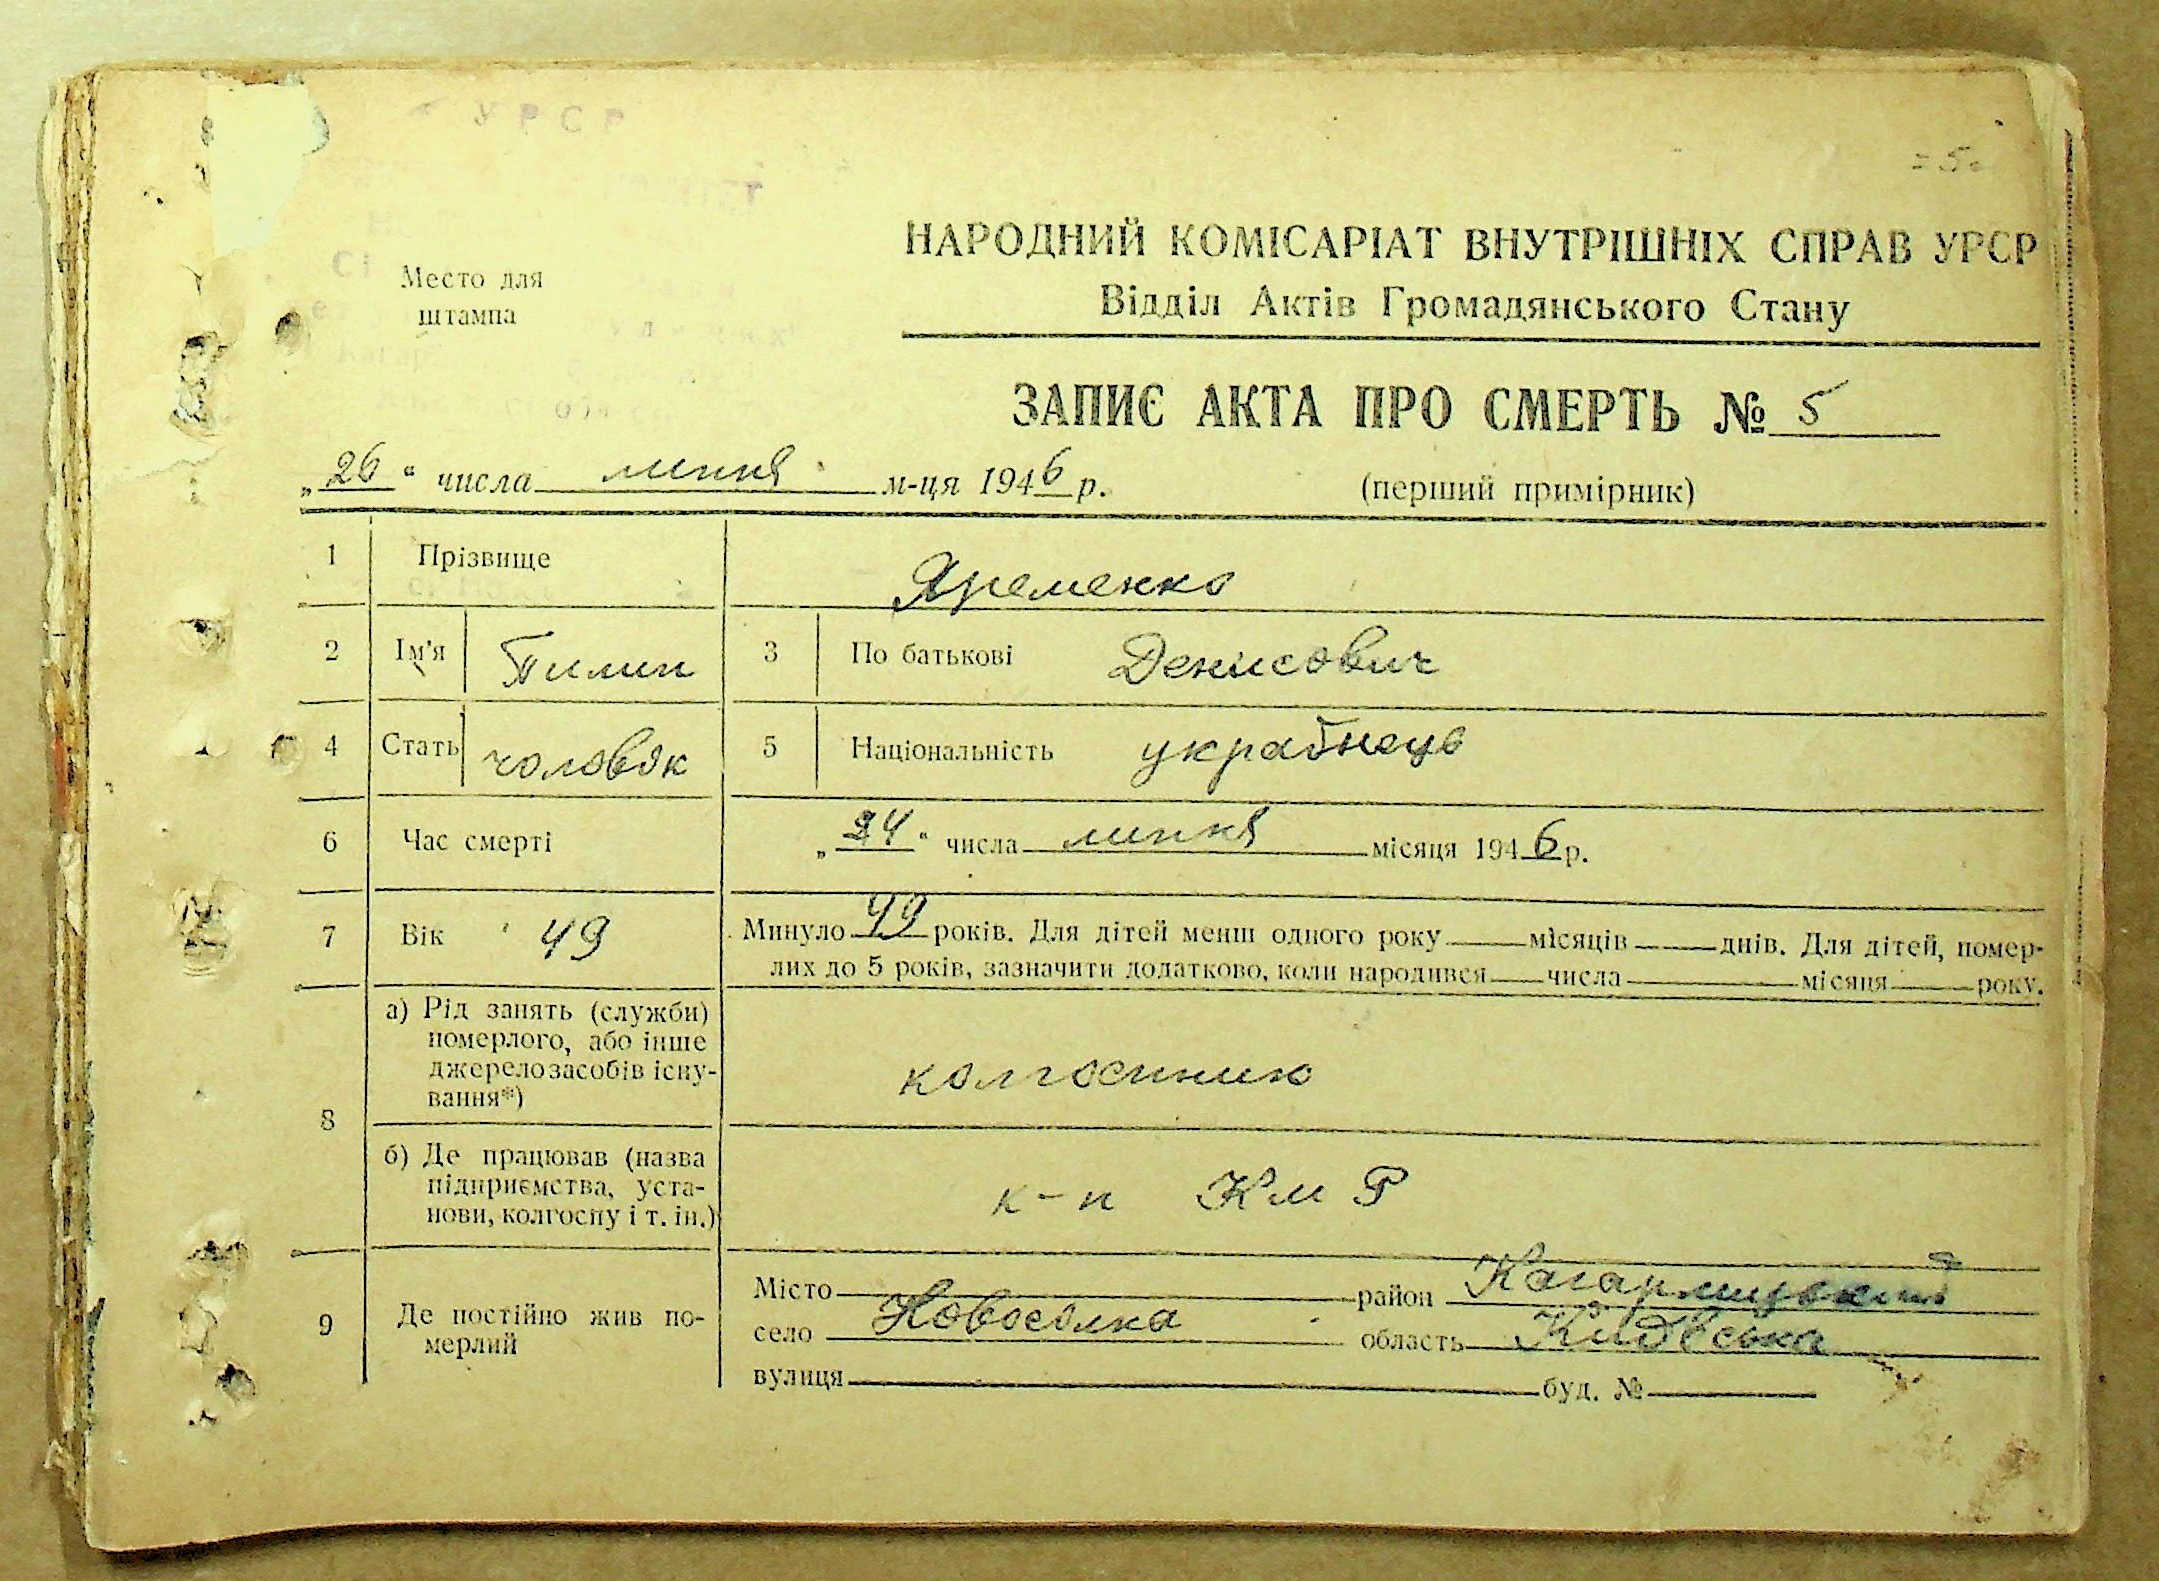 УРСР
= 5 =
НАРОДНИЙ КОМІСАРІАТ ВНУТРІШНІХ СПРАВ УРСР
Відділ Актів Громадянського Стану
Место для
штампа
ЗАПИС АКТА ПРО СМЕРТЬ № 5
„26“ числа липня м-ця 1946 р.
(перший примірник)
1 Прізвище Яременко
2 Ім'я Пилип 3 По батькові Денисович
4 Стать чоловік 5 Національність українець
6 Час смерті „24“ числа липня місяця 1946 р.
7 Вік 49 Минуло 49 років. Для дітей менш одного року місяців днів. Для дітей, помер-
лих до 5 років, зазначити додатково, коли народився числа місяця року.
8 а) Рід занять (служби)
померлого, або інше
джерело засобів існу-
вання*)
колгоспник
б) Де працював (назва
підприємства, уста-
нови, колгоспу і т. ін.)
к-п КиМ
9 Де постійно жив по-
мерлий
Місто район Кагарлицький
село Новосілка область Київська
вулиця буд. №